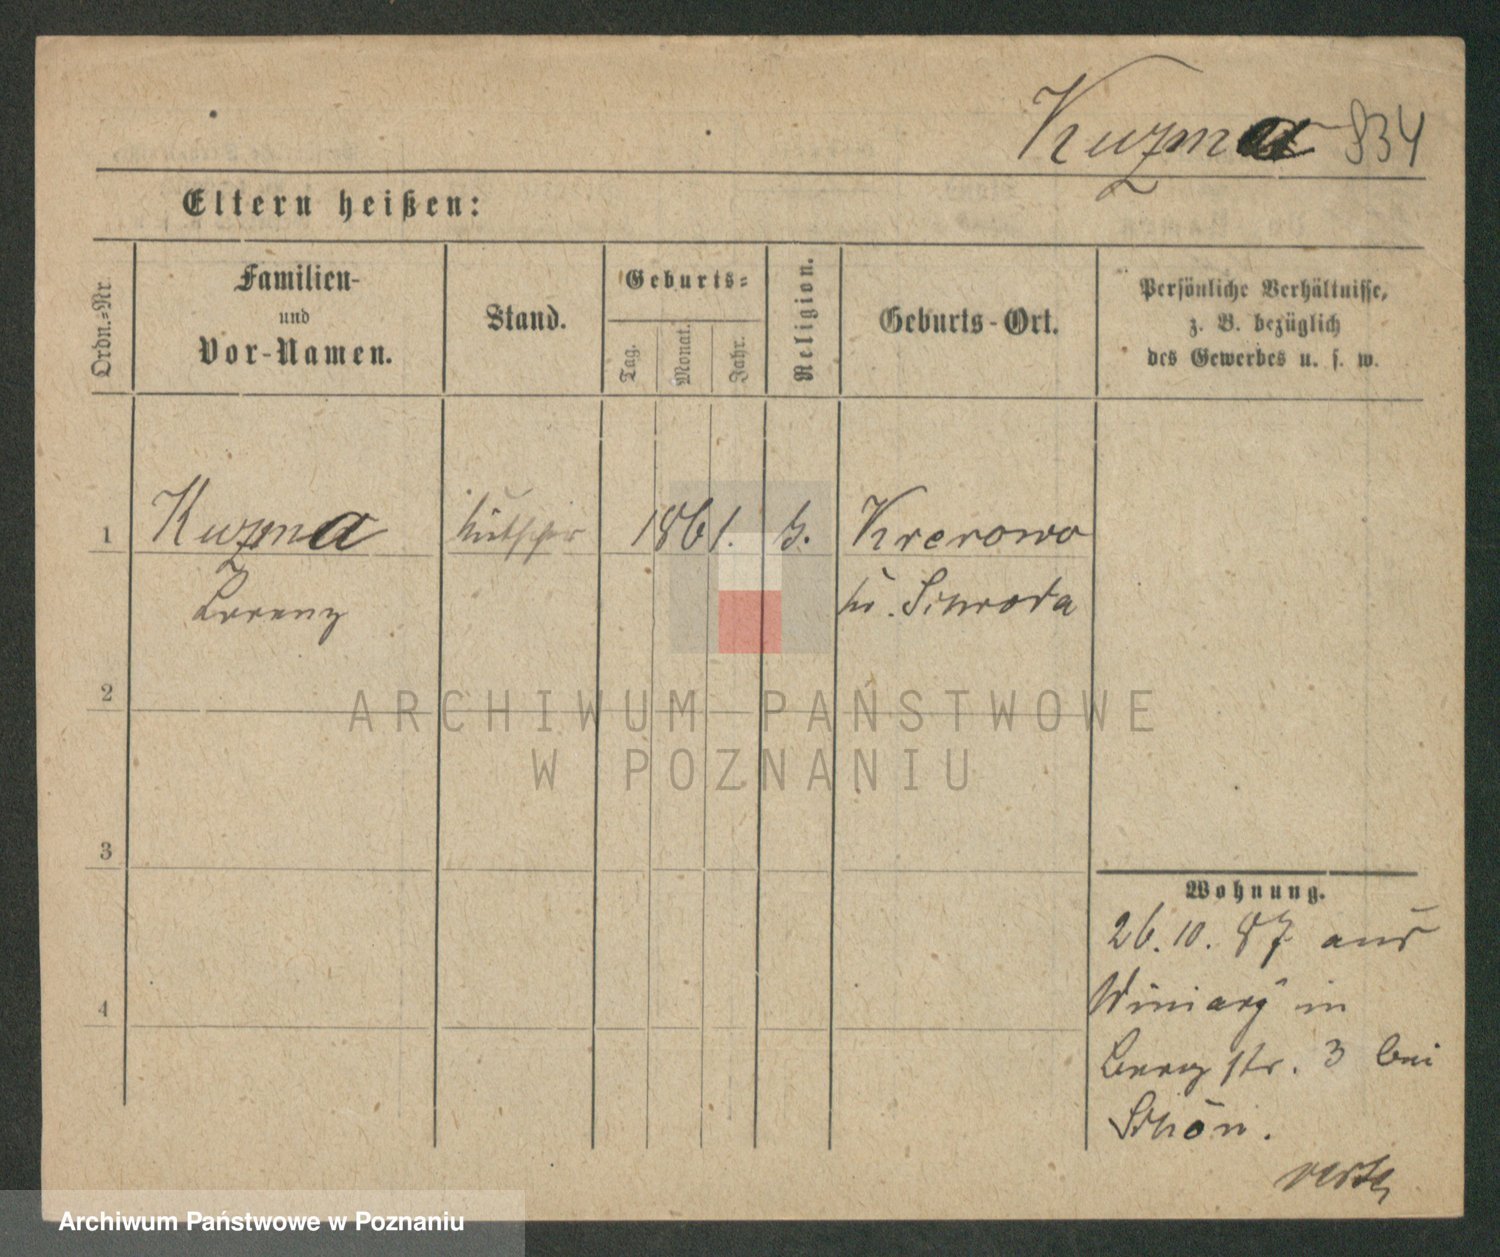 Kuzma 834
Eltern heißen:
Ordn.-Nr.
Familien-
und
Vor-Namen.
Stand.
Geburts-
Tag.
Monat.
Jahr.
Religion.
Geburts-Ort.
Persönliche Verhältnisse,
z. B. bezüglich
des Gewerbes u. s. w.
1 Kuzma Kutscher 1861. Krerowo
Lorenz Kr. Schroda
2
ARCHIWUM PAŃSTWOWE
W POZNANIU
3
Wohnung.
26.10.87 aus
4
Winiary in
str. 3 bei
Schön.
Archiwum Państwowe w Poznaniu